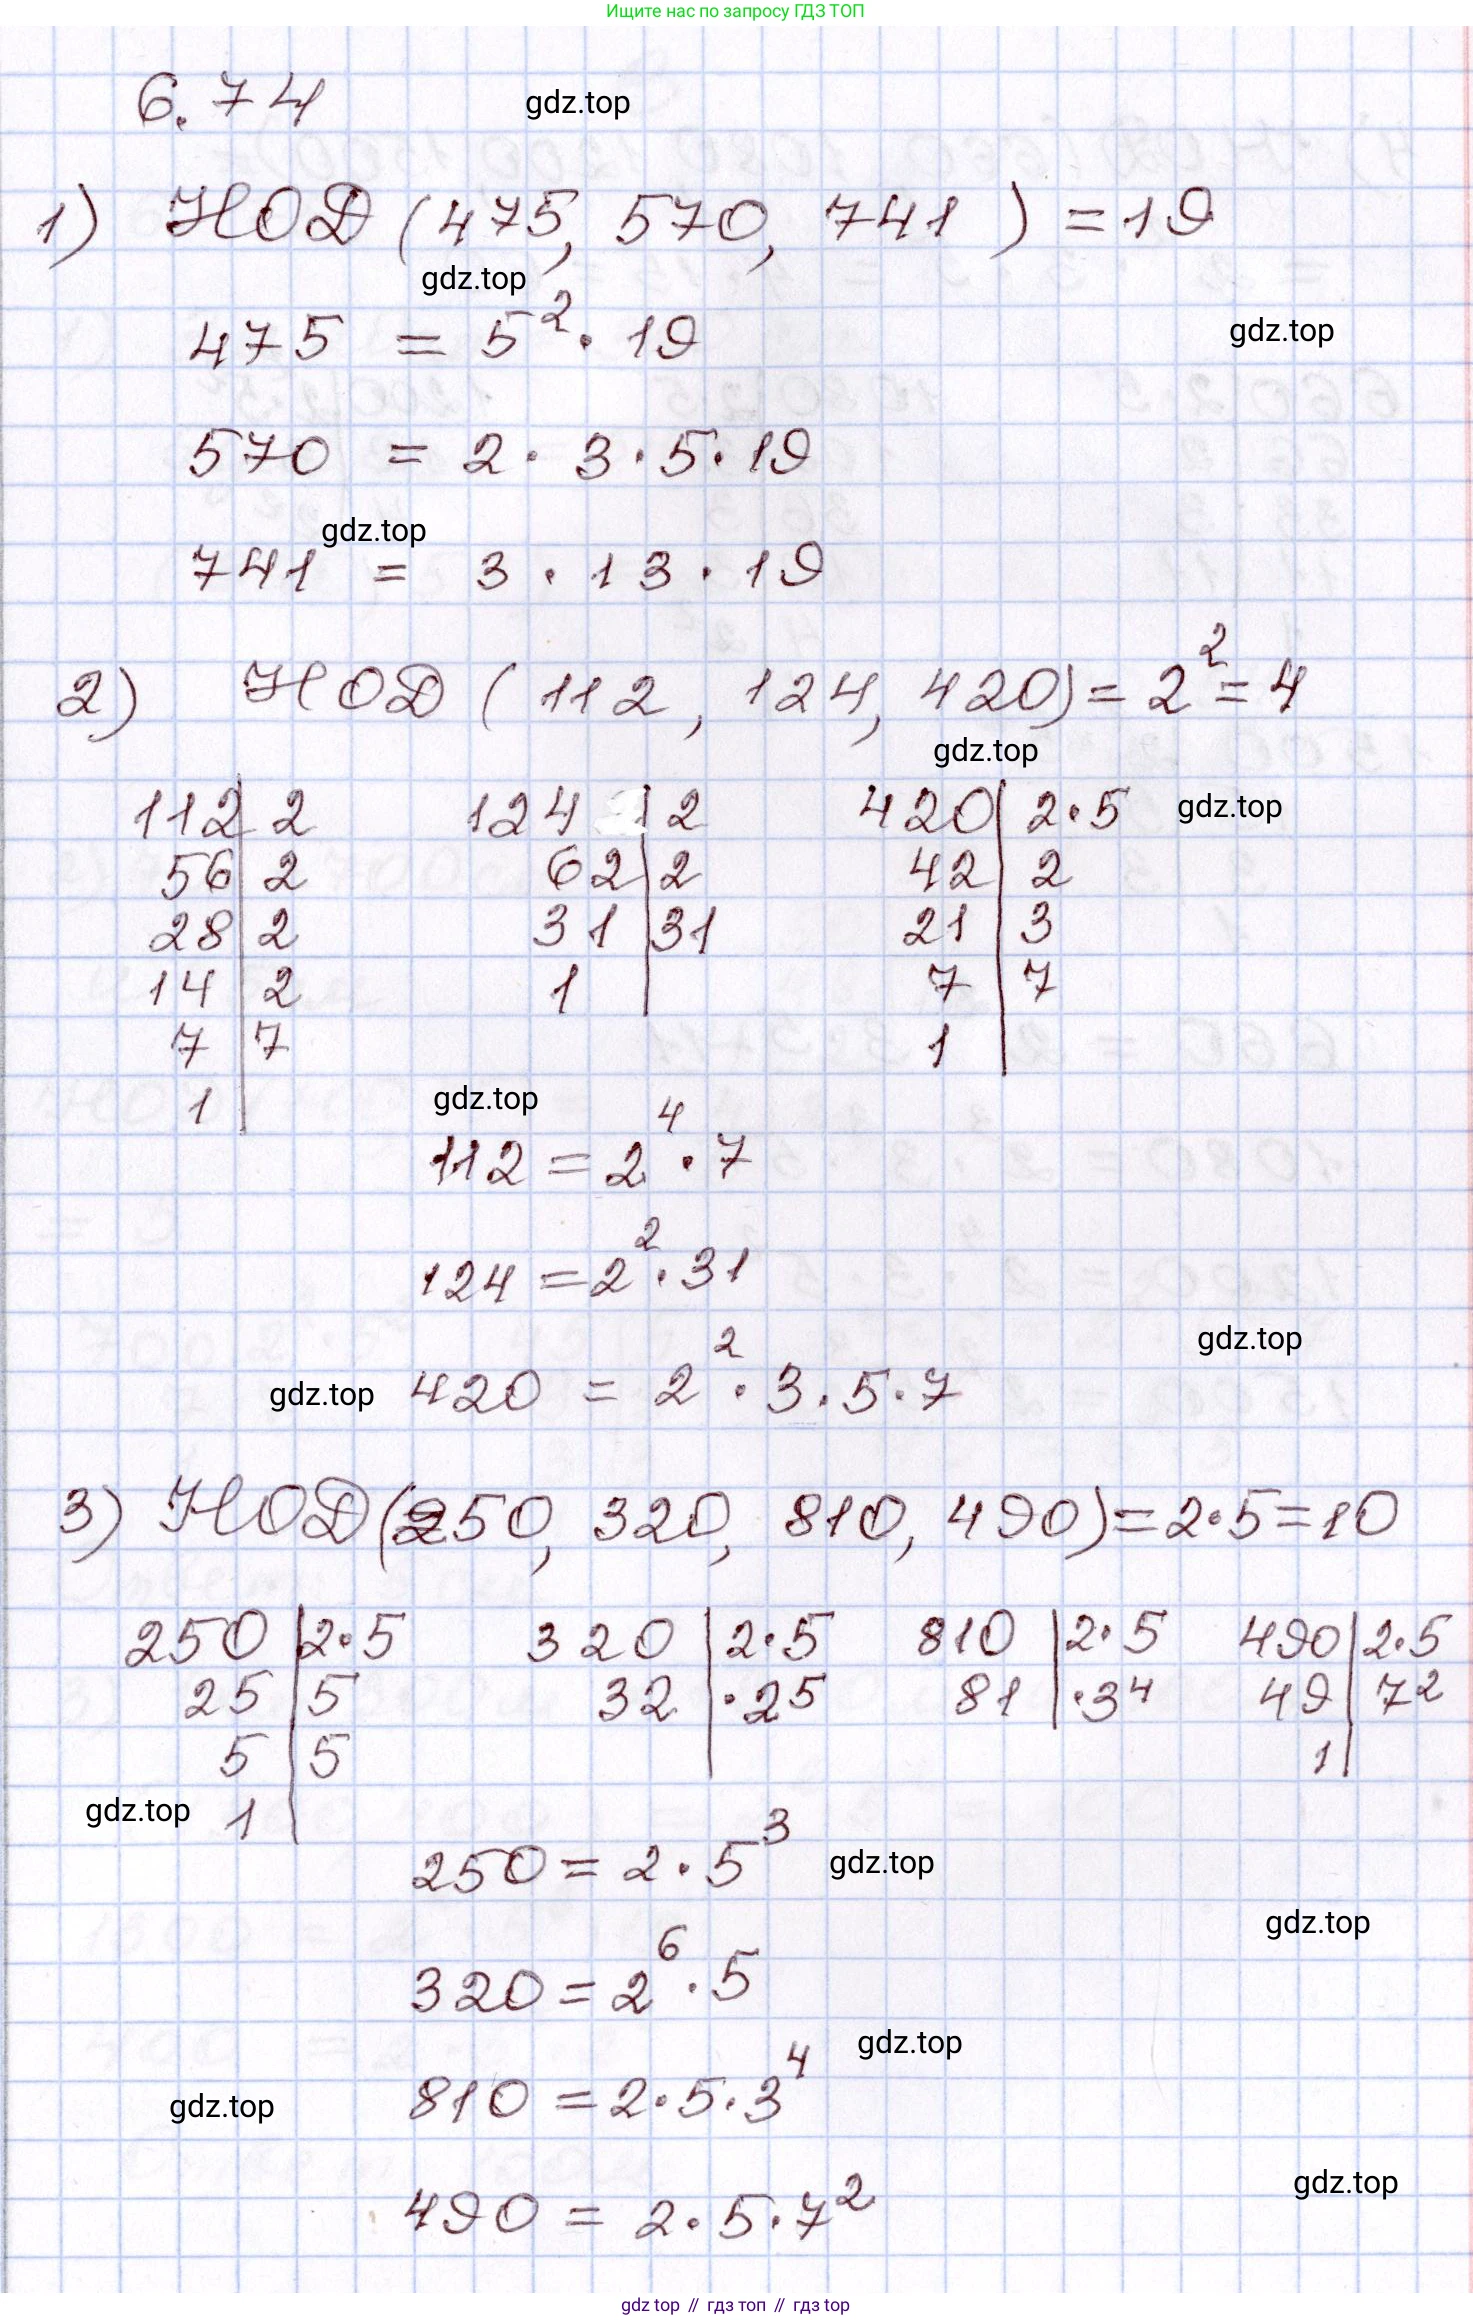 Ищите нас по запросу ГДЗ ТОП
6.74
gdz.top
1) НОД (475, 570, 741) = 19
gdz.top
475 = 5² · 19
gdz.top
570 = 2 · 3 · 5 · 19
gdz.top
741 = 3 · 13 · 19
2) НОД (112, 124, 420) = 2² = 4
gdz.top
112 | 2 124 | 2 420 | 2·5 gdz.top
56 | 2 62 | 2 42 | 2
28 | 2 31 | 31 21 | 3
14 | 2 1 | 7 | 7
7 | 7 1 |
1 |
gdz.top
112 = 2⁴ · 7
124 = 2² · 31
gdz.top
gdz.top 420 = 2² · 3 · 5 · 7
3) НОД (250, 320, 810, 490) = 2·5 = 10
250 | 2·5 320 | 2·5 810 | 2·5 490 | 2·5
25 | 5 32 | ·2⁵ 81 | ·3⁴ 49 | 7²
5 | 5 1 |
gdz.top 1 |
250 = 2 · 5³ gdz.top
gdz.top
320 = 2⁶ · 5
gdz.top
810 = 2 · 5 · 3⁴
gdz.top
gdz.top
490 = 2 · 5 · 7²
gdz top // гдз топ // гдз top